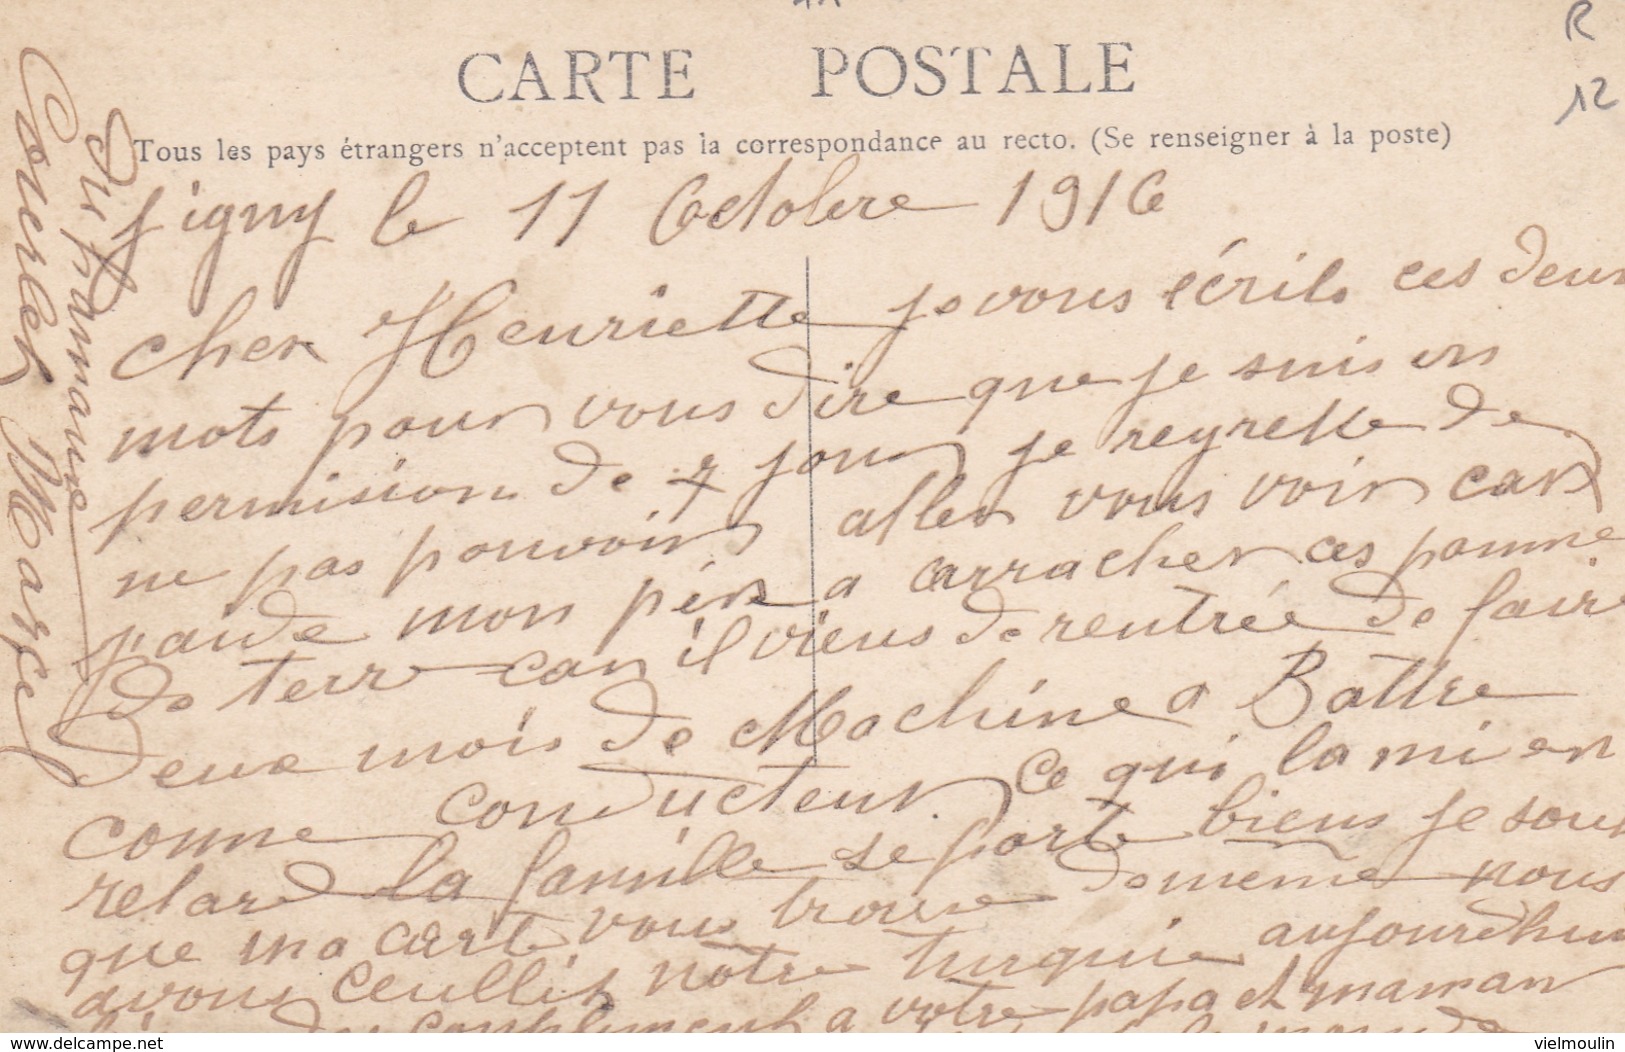 R
12
CARTE POSTALE
Tous les pays étrangers n'acceptent pas la correspondance au recto. (Se renseigner à la poste)
Ligny le 11 Octobre 1916
cher Henriette je vous écrits ces deux
mots pour vous dire que je suis en
permision de 7 jour je regrette de
ne pas pouvoir aller vous voir car
j'aide mon pére a arracher ces pomme
de terre car il viens de rentrée de faire
deux mois de Machine a Battre
comme conducteur ce qui la mi en
retard la famille se porte biens je souè
que ma carte vous trouve de meme nous
avons ceuillis notre turquie aujourdhui
complimenta a votre papa et maman
Marcel
delcampe.net
vielmoulin